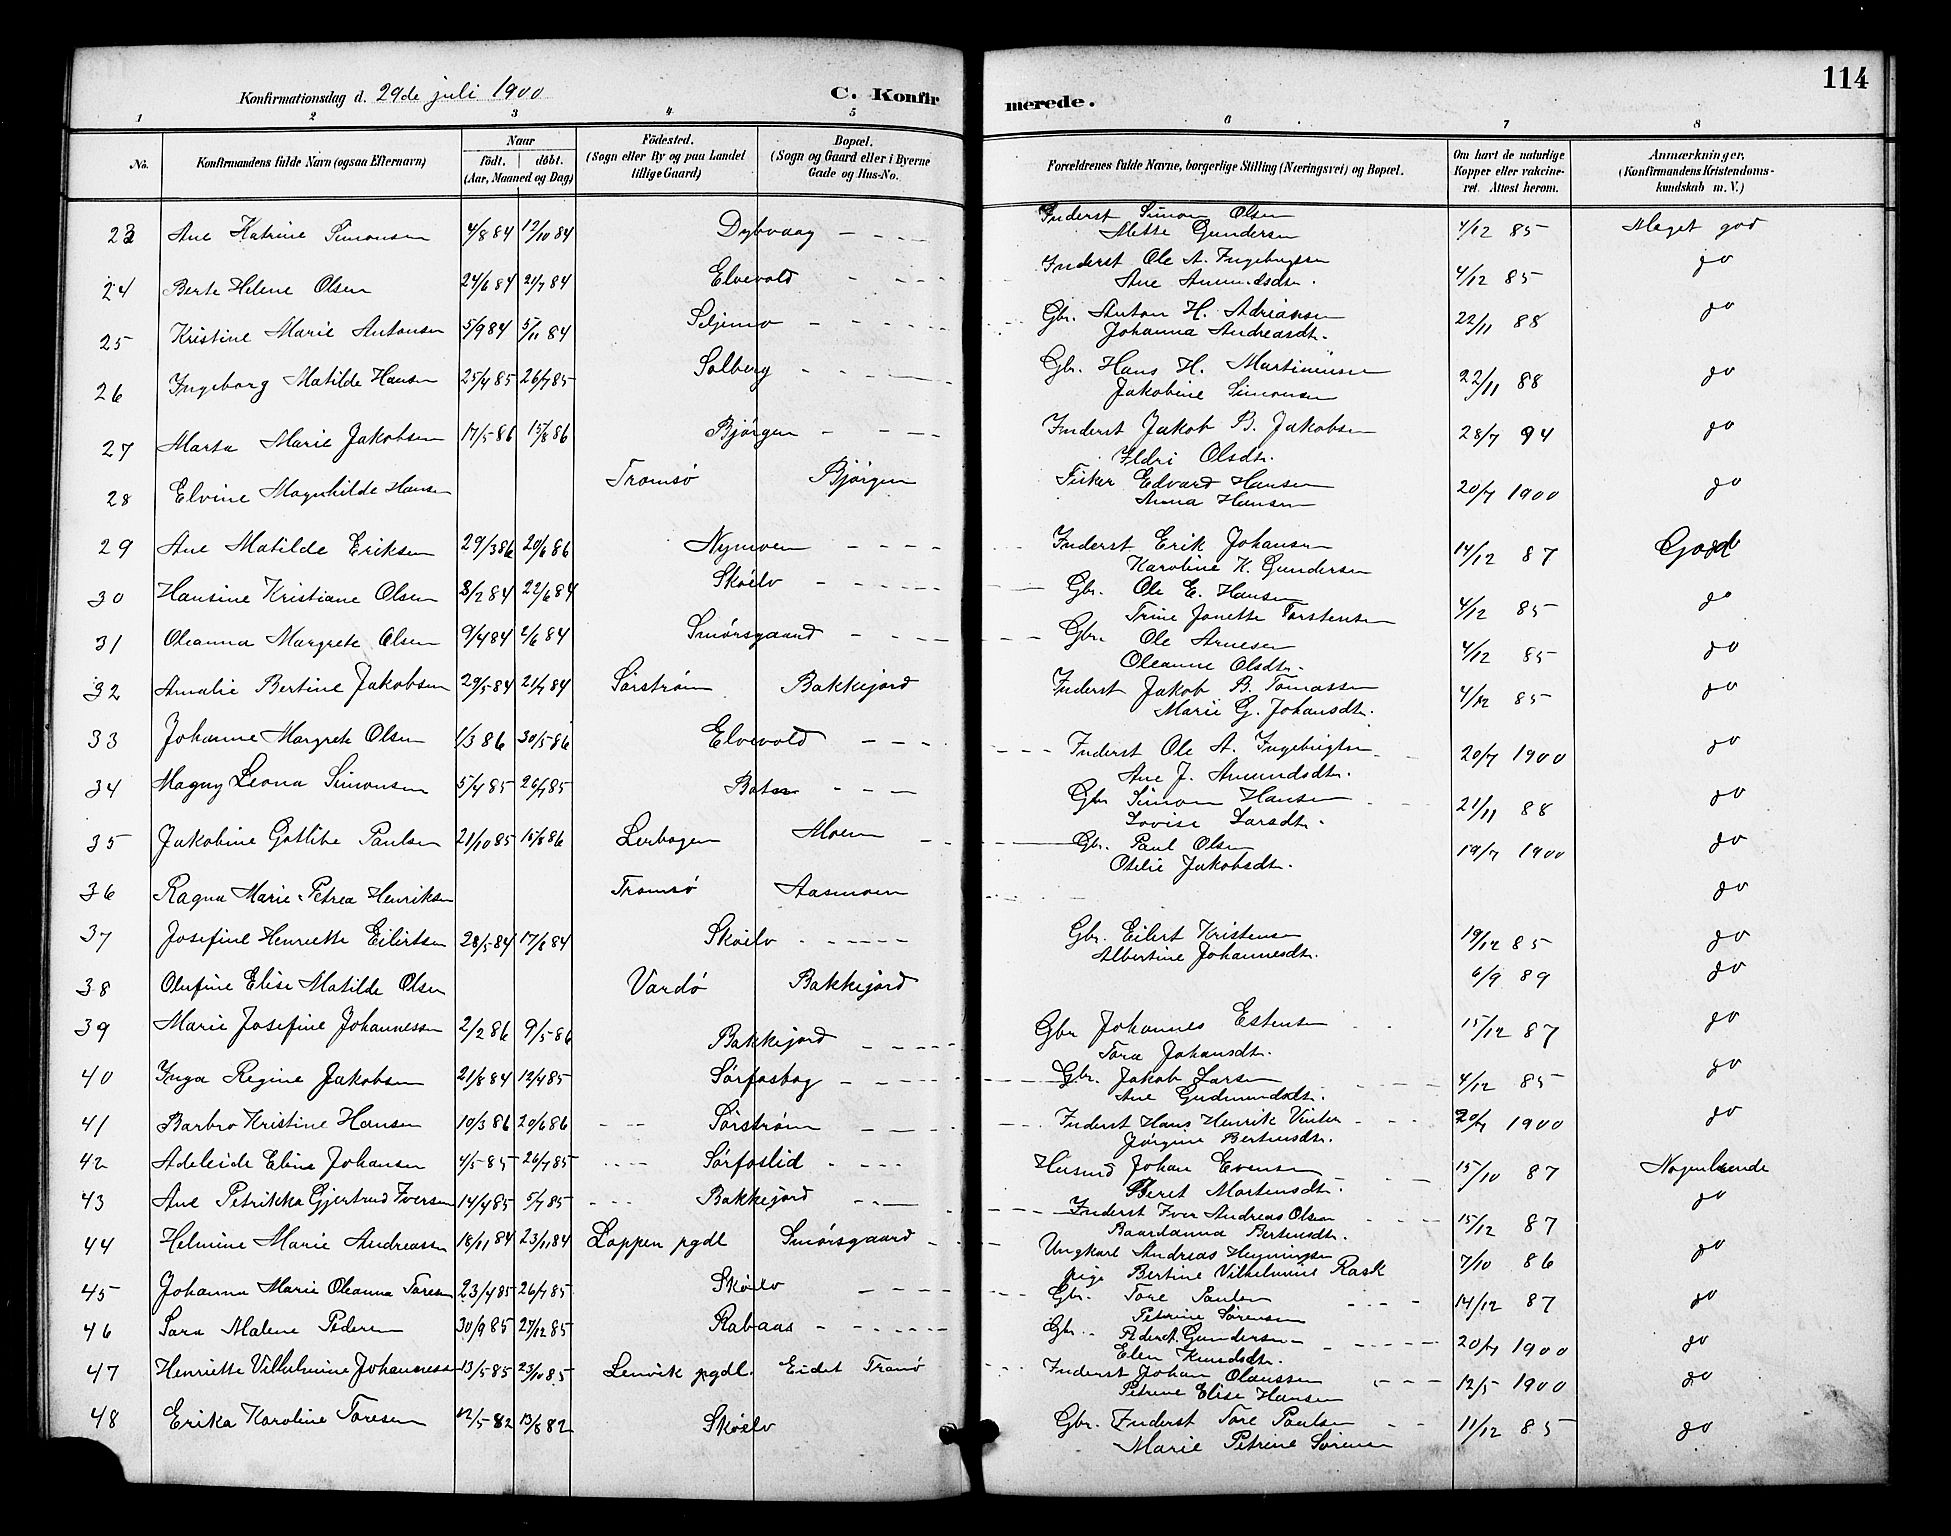 114
Konfirmationsdag d. 29de juli 1900 C. Konfir merede.
1 2 3 4 5 6 7 8
No. Konfirmandens fulde Navn (ogsaa Efternavn) Naar født. døbt. (Aar, Maaned og Dag) Födested. (Sogn eller By og paa Landet tillige Gaard) Bopæl. (Sogn og Gaard eller i Byerne Gade og Hus-No. Forældrenes fulde Navne, borgerlige Stilling (Næringsvei) og Bopæl. Om havt de naturlige Kopper eller vakcineret. Attest herom. Anmærkninger. (Konfirmandens Kristendomskundskab m. V.)
23 Ane Katrine Simonsen 4/8 84 12/10 84 Dybvaag Inderst Simon Olsen 4/12 85 Meget god
Mette Gundersen
24 Berte Helene Olsen 24/6 84 20/7 84 Elvevold Inderst Ole A. Ingebrigtsen 4/12 85 do
Ane Amundsdtr.
25 Kristine Marie Antonsen 5/9 84 5/11 84 Seljemo Gbr. Anton H. Adriansen 22/11 88 do
Johanna Andreasdtr.
26 Ingeborg Matilde Hansen 25/4 85 26/7 85 Solberg Gbr. Hans H. Martinussen 22/11 88 do
Jakobine Simonsen
27 Marta Marie Jakobsen 17/5 86 15/8 86 Bjørgen Inderst Jakob B. Jakobsen 28/7 94 do
Ildri Olsdtr.
28 Elvine Magnhilde Hansen Tromsø Bjørgen Fisker Edvard Hansen 20/7 1900 do
Anna Hansen
29 Ane Matilde Eriksen 29/3 86 20/6 86 Nymoen Inderst Erik Johansen 14/12 87 God
Karoline K. Gundersen
30 Hansine Kristiane Olsen 3/2 84 22/6 84 Skøelv Gbr. Ole E. Hansen 4/12 85 do
Trine Jonette Torstensen
31 Oleanna Margrete Olsen 9/4 84 2/6 84 Smørsgaard Gbr. Ole Arnesen 4/12 85 do
Oleanne Olsdtr.
32 Amalie Bertine Jakobsen 29/5 84 21/7 84 Sørstrøm Bakkejord Inderst Jakob B. Tomassen 4/12 85 do
Marie G. Johansdtr.
33 Johanne Margrete Olsen 1/3 86 30/5 86 Elvevold Inderst Ole A. Ingebrigtsen 20/7 1900 do
Ane J. Amundsdtr.
34 Magny Leona Simonsen 5/4 85 26/7 85 Botn Gbr Simon Hansen 21/11 88 do
Lovise Larsdtr.
35 Jakobine Gotlibe Paulsen 21/10 85 15/8 86 Leirbogen Moen Gbr. Paul Olsen 19/7 1900 do
Otelie Jakobsdtr.
36 Ragna Marie Petrea Henriksen Tromsø Aasmoen do
37 Josefine Henriette Eilertsen 28/5 84 17/6 84 Skøelv Gbr. Eilert Kristensen 19/12 85 do
Albertine Johannesdtr.
38 Olufine Elise Matilde Olsen Vardø Bakkejord 6/9 89 do
39 Marie Josefine Johannessen 2/2 86 9/5 86 Bakkejord Gbr Johannes Estensen 15/12 87 do
Tora Johansdtr.
40 Inga Regine Jakobsen 21/8 84 12/4 85 Sørfosbog Gbr. Jakob Larsen 4/12 85 do
Ane Gudmundsdtr.
41 Barbro Kristine Hansen 10/3 86 20/6 86 Sørstrøm Inderst Hans Henrik Vinter 20/7 1900 do
Jørgine Berteusdtr.
42 Adeleide Elina Johansen 4/5 85 26/7 85 Sørfoslid Husmd Johan Evensen 15/10 87 Nogenlunde
Beret Mortensdtr.
43 Ane Petrikka Gjertrud Iversen 14/4 85 5/7 85 Bakkejord Inderst Iver Andreas Olsen 15/12 87 do
Baardanna Berteusdtr.
44 Helmine Marie Andreassen 18/11 84 23/11 84 Loppen pgdl Smørsgaard Ungkarl Andreas Henningsen 7/10 86 do
pige Bertine Vilhelmine Rask
45 Johanna Marie Oleanna Toresen 23/4 85 26/7 85 Skøelv Gbr. Tore Paulsen 14/12 87 do
Petrine Sørensen
46 Sara Malene Pedersen 30/9 85 27/12 85 Rabaas Gbr. Peder Gundersen 20/7 1900 do
Elen Knudsdtr.
47 Henriette Vilhelmine Johannessen 13/5 85 23/10 85 Lenvik pgdl. Eidet Tranø Inderst Johan Olaussen 12/5 1900 do
Petrine Elise Hansen
48 Erika Karoline Toresen 12/5 82 13/8 82 Skøelv Gbr. Inderst Tore Paulsen 11/12 85 do
Marie Petrine Sørensen